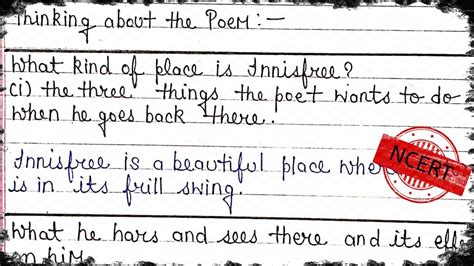 Thinking about the Poem:-
What kind of place is Innisfree?
(i) the three things the poet wants to do
when he goes back there.
Innisfree is a beautiful place whe
is in its frill swing.
NCERT
What he hars and sees there and its effe
on him